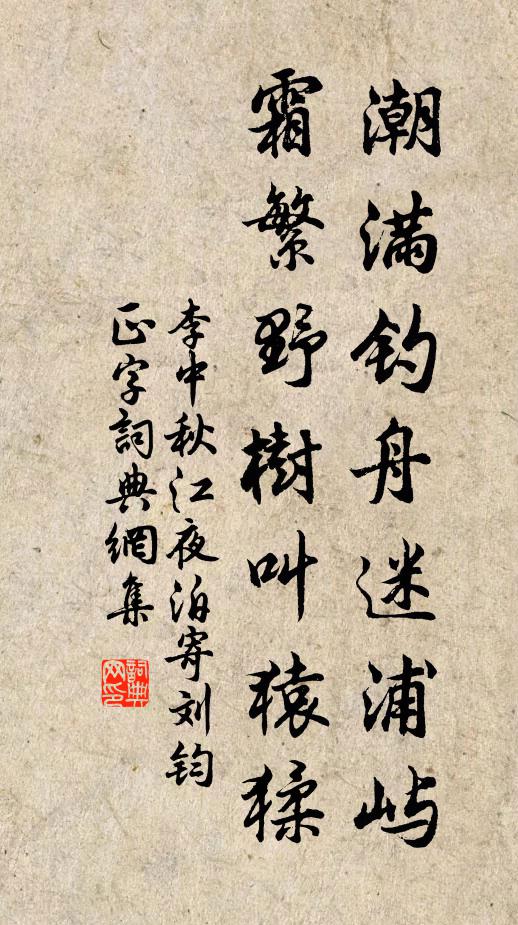 潮满钓舟迷浦屿
霜繁野樹叫猿猱
李中秋江夜泊寄刘钧
正字詞典網集
詞典
网印